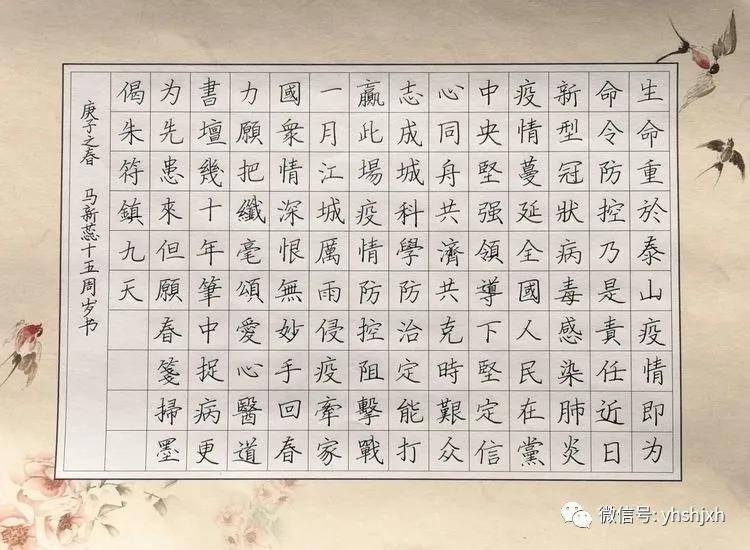 生命重於泰山疫情即为
命令防控乃是責任近日
新型冠狀病毒感染肺炎
疫情蔓延全國人民在黨
中央堅强領導下堅定信
心同舟共濟共克時艱众
志成城科學防治定能打
贏此場疫情防控阻擊戰
一月江城厲雨侵疫牽家
國衆情深恨無妙手回春
力願把纖毫頌愛心醫道
書壇幾十年筆中捉病更
为先患來但願春箋掃墨
偈朱符鎮九天
庚子之春 马新蕊十五周岁书
微信号: yhshjxh